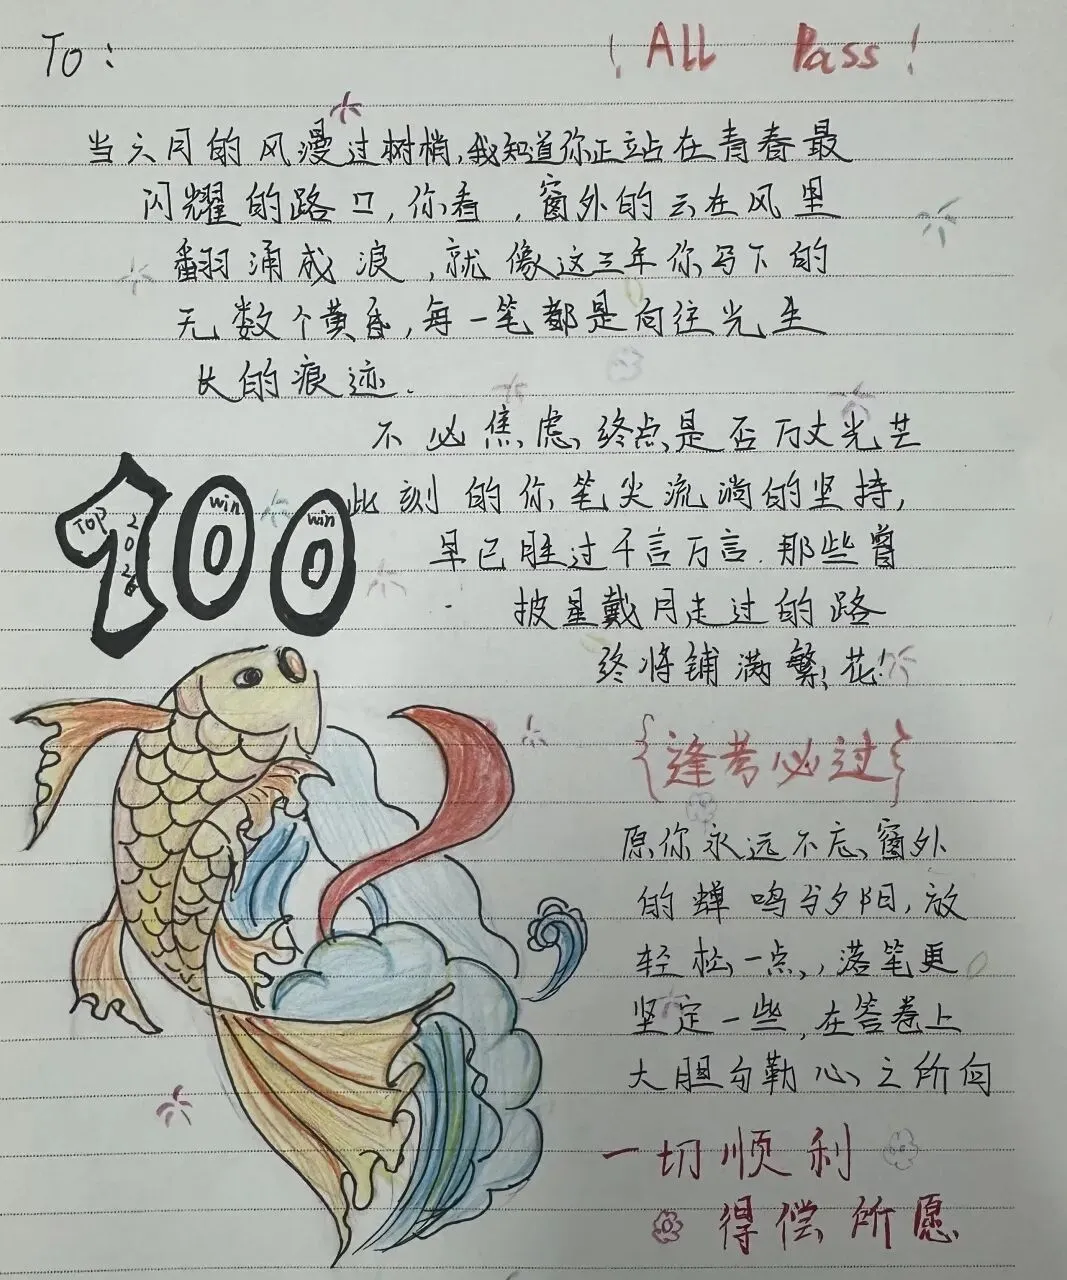 To:
! All Pass !
当六月的风漫过树梢,我知道你正站在青春最
闪耀的路口,你看,窗外的云在风里
翻涌成浪,就像这三年你写下的
无数个黄昏,每一笔都是向往光生
长的痕迹.
不必焦虑终点是否万丈光芒
此刻的你笔尖流淌的坚持,
早已胜过千言万言.那些曾
披星戴月走过的路
终将铺满繁花!
TOP
win
win
{逢考必过}
原你永远不忘窗外
的蝉鸣与夕阳,放
轻松一点,落笔更
坚定一些,在答卷上
大胆勾勒心之所向
一切顺利
得偿所愿